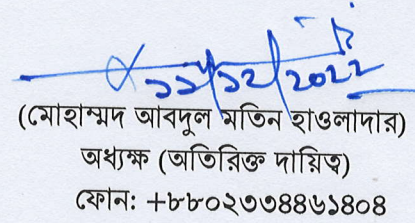 ১১/১২/২০২২
(মোহাম্মদ আবদুল মতিন হাওলাদার)
অধ্যক্ষ (অতিরিক্ত দায়িত্ব)
ফোন: +৮৮০২৩৩৪৪৬১৪০৪